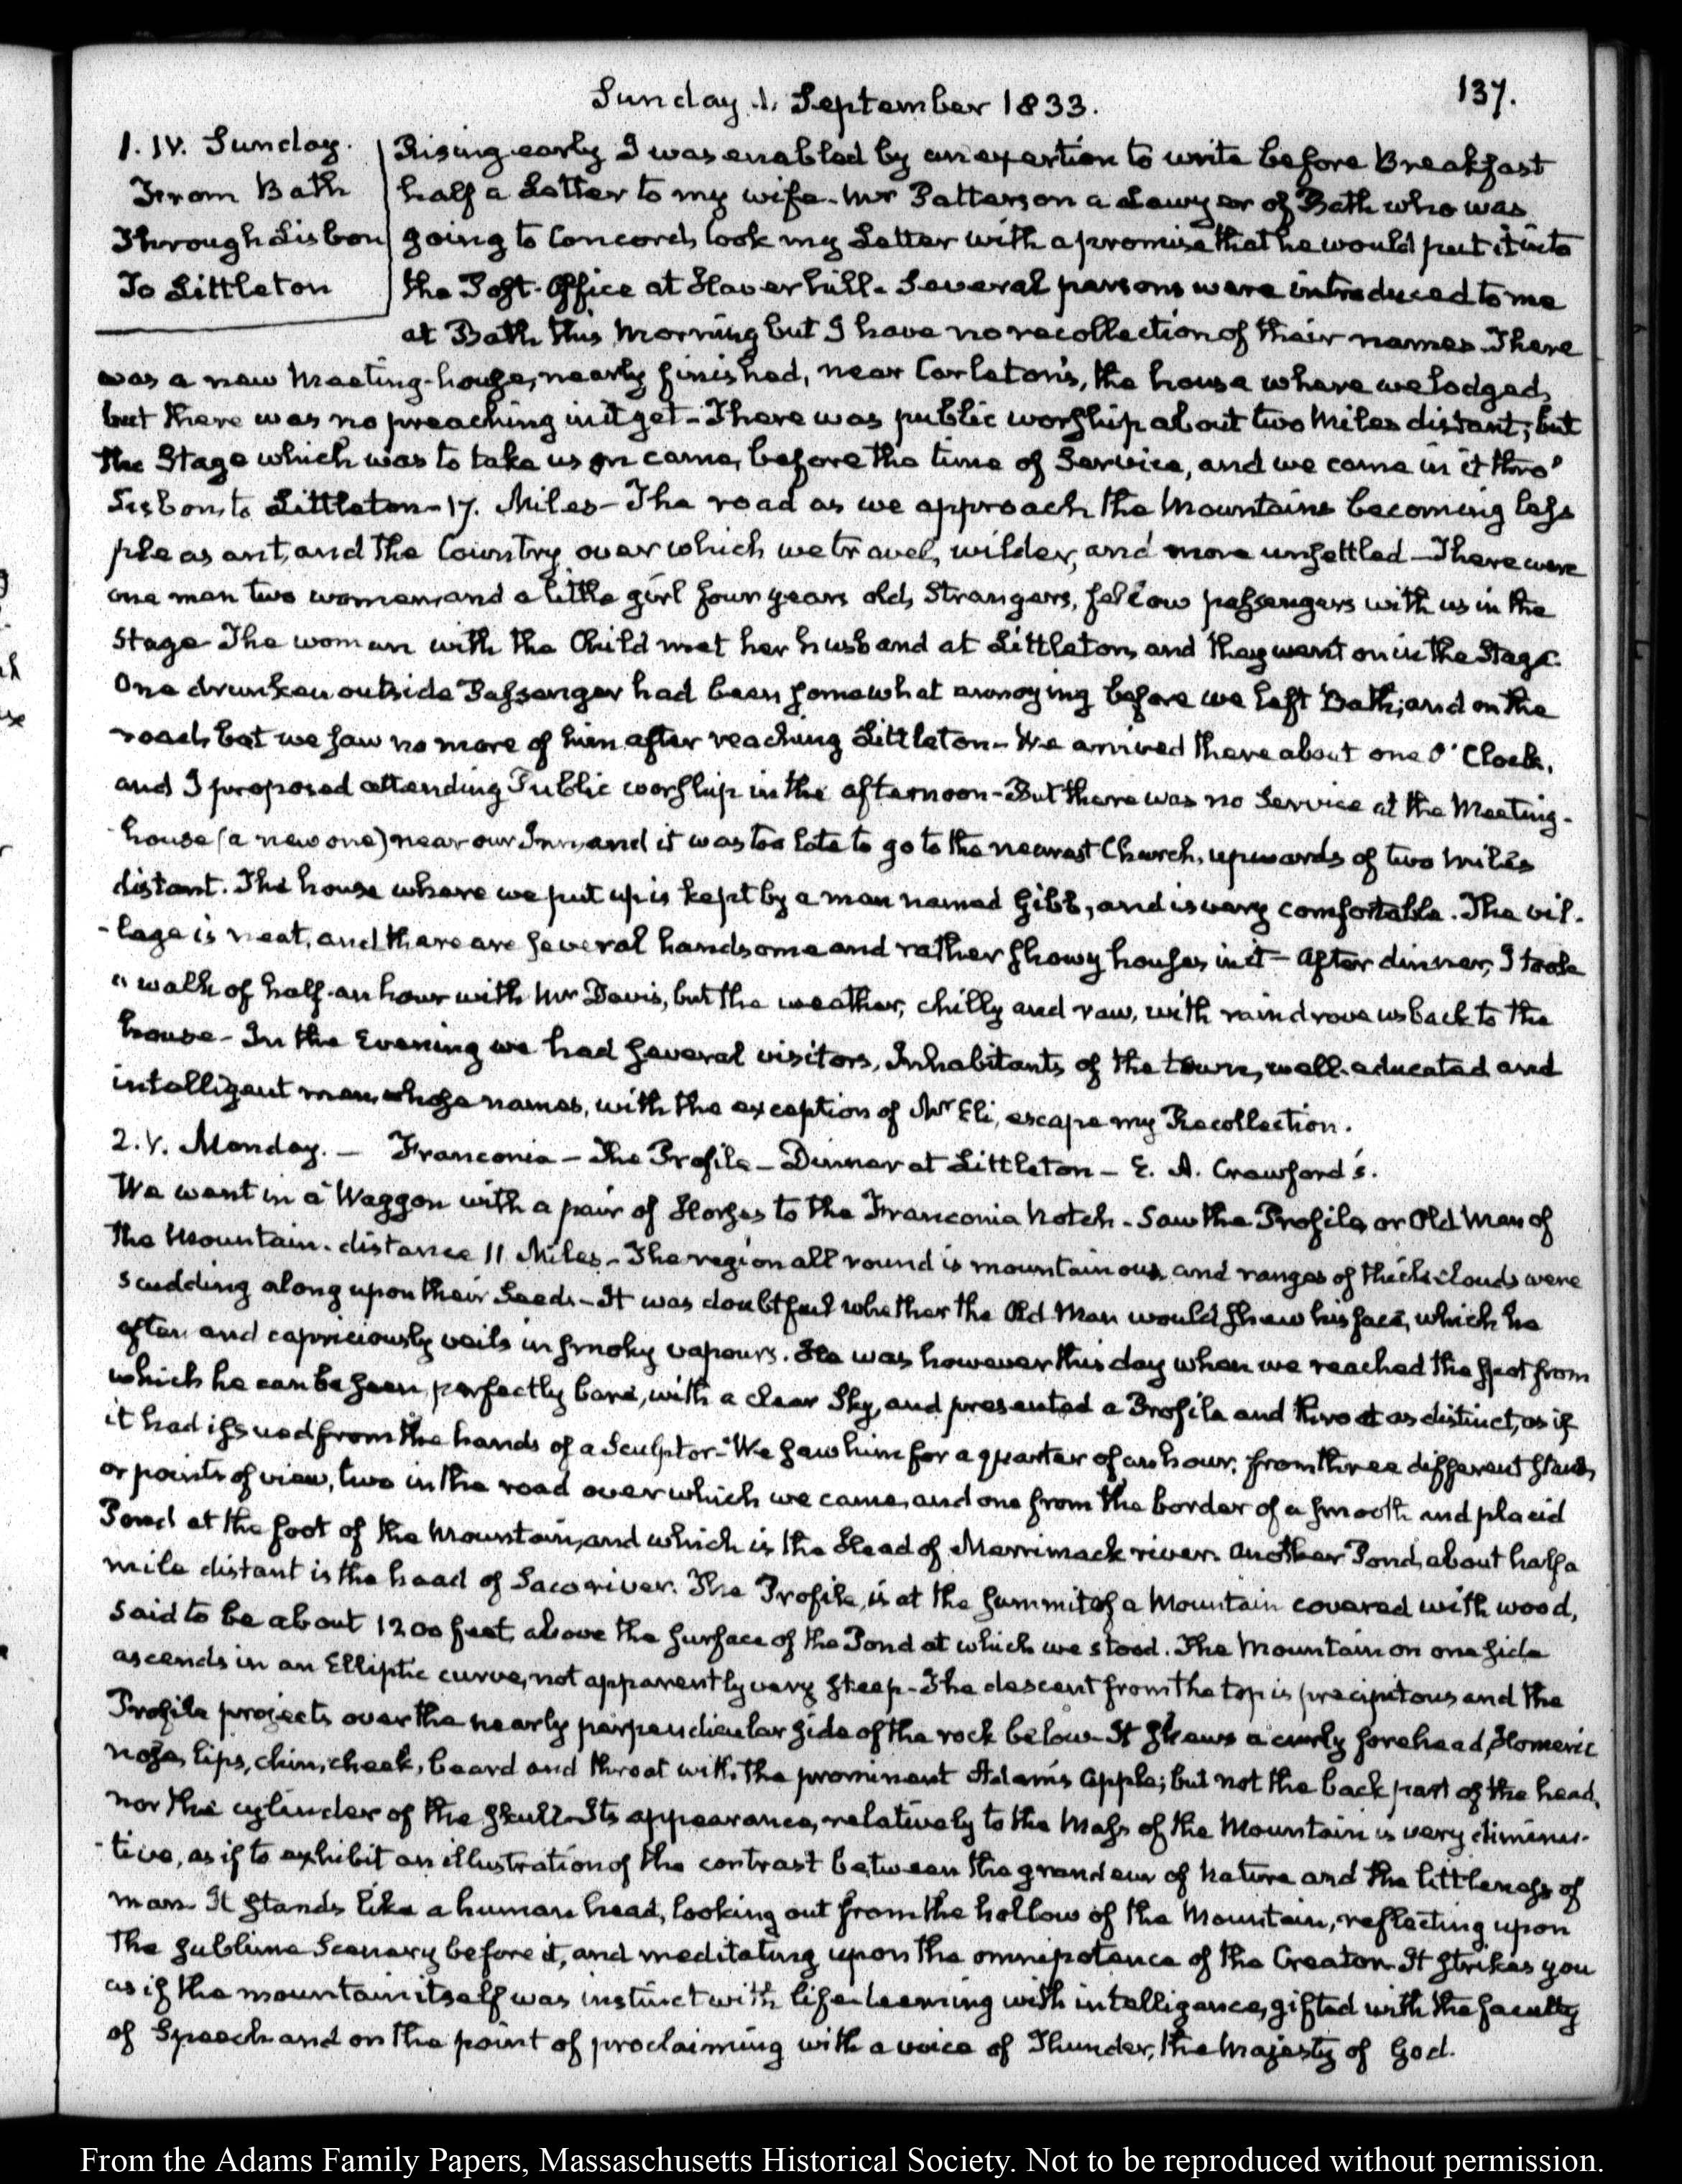 Sunday 1. September 1833.
137.
1. IV. Sunday.
From Bath
Through Lisbon
To Littleton
Rising early I was enabled by an exertion to write before Breakfast
half a Letter to my wife. Mr Patterson a Lawyer of Bath who was
going to Concord, took my Letter with a promise that he would put it into
the Post-Office at Haverhill. Several persons were introduced to me
at Bath this Morning but I have no recollection of their names. There
was a new Meeting-house, nearly finished, near Carleton's, the house where we lodged,
but there was no preaching in it yet - There was public worship about two Miles distant; but
the Stage which was to take us on came, before the time of Service, and we came in it thro'
Lisbon, to Littleton - 17. Miles - The road as we approach the Mountains becoming less
pleasant, and the Country over which we travel, wilder, and more unsettled - There were
one man two women, and a little girl four years old, Strangers, fellow passengers with us in the
Stage - The woman with the Child met her husband at Littleton, and they went on in the Stage.
One drunken outside Passenger had been somewhat annoying before we left Bath; and on the
road, but we saw no more of him after reaching Littleton - We arrived there about one O'Clock,
and I proposed attending Public worship in the afternoon - But there was no Service at the Meeting-
house (a new one) near our Inn, and it was too late to go to the nearest Church, upwards of two Miles
distant. The house where we put up is kept by a man named Gibb, and is very comfortable. The vil-
-lage is neat, and there are several handsome and rather showy houses in it - After dinner, I took
a walk of half-an hour with Mr Davis, but the weather, chilly and raw, with rain drove us back to the
house - In the Evening we had several visitors, Inhabitants of the town, well-educated and
intelligent men, whose names, with the exception of Mr Eli, escape my Recollection.
2. V. Monday. - Franconia - The Profile - Dinner at Littleton - E. A. Crawford's.
We went in a Waggon with a pair of Horses to the Franconia Notch - Saw the Profile, or Old Man of
the Mountain - distance 11 Miles - The region all round is mountainous, and ranges of thick clouds were
scudding along upon their heads - It was doubtful whether the Old Man would shew his face, which he
often and capriciously veils in smoky vapours. He was however this day when we reached the spot from
which he can be seen, perfectly bare, with a clear Sky, and presented a Profile and throat as distinct, as if
it had issued from the hands of a Sculptor - We saw him for a quarter of an hour, from three different stands,
or points of view, two in the road over which we came, and one from the border of a smooth and placid
Pond at the foot of the Mountain, and which is the Head of Merrimack river. Another Pond, about half a
mile distant is the head of Saco river. The Profile, is at the summit of a Mountain covered with wood,
said to be about 1200 feet, above the surface of the Pond at which we stood. The Mountain on one side
ascends in an Elliptic curve, not apparently very steep - The descent from the top is precipitous and the
Profile projects over the nearly perpendicular side of the rock below - It shews a curly forehead, Homeric
nose, lips, chin, cheek, beard and throat with the prominent Adam's Apple; but not the back part of the head,
nor the cylinder of the skull - Its appearance, relatively to the Mass of the Mountain is very diminu-
-tive, as if to exhibit an illustration of the contrast between the grandeur of Nature and the littleness of
man. It stands like a human head, looking out from the hollow of the Mountain, reflecting upon
the sublime Scenery before it, and meditating upon the omnipotence of the Creator. It strikes you
as if the mountain itself was instinct with life - beeming with intelligence, gifted with the faculty
of Speech and on the point of proclaiming with a voice of Thunder, the Majesty of God.
From the Adams Family Papers, Massaschusetts Historical Society. Not to be reproduced without permission.